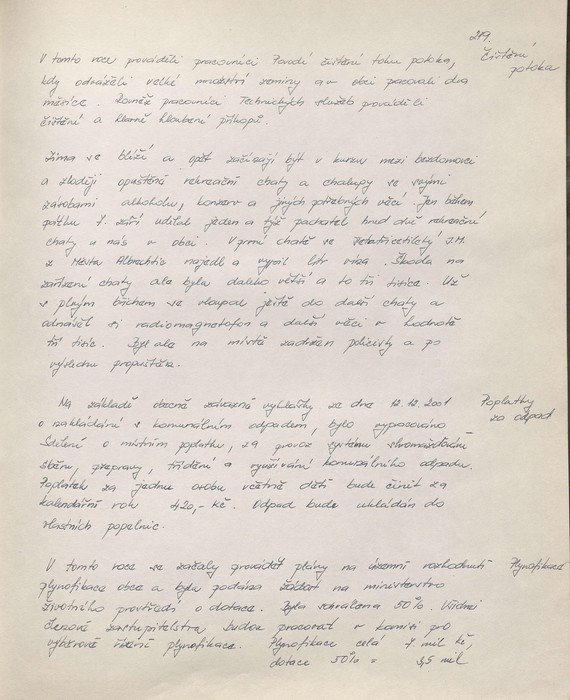 219
V tomto roce prováděli pracovníci Povodí čištění toku potoka,
Čištění
potoka
kdy odváželi velké množství zeminy a v obci pracovali dva
měsíce. Rovněž pracovníci Technických služeb prováděli
čištění a hlavně hloubení příkopů.
Zima se blíží a opět začínají být v kurzu mezi bezdomovci
a zloději opuštěná rekreační chaty a chalupy se svými
zásobami alkoholu, konzerv a jiných potřebných věcí. Jen během
pátku 7. září udělal jeden a týž pachatel hned dvě rekreační
chaty u nás v obci. V první chatě se J.M.
z Města Albrechtic najedl a vypil litr vína. Škoda na
zařízení chaty ale byla daleko větší a to tři tisíce. Už
s plným břichem se vloupal ještě do další chaty a
odnášel si radiomagnetofon a další věci v hodnotě
tři tisíc. Byl ale na místě zadržen policisty a po
výslechu propuštěn.
Na základě obecně závazné vyhlášky ze dne 12.12.2001
Poplatky
za odpad
o nakládání s komunálním odpadem, bylo vypracováno
Sdělení o místním poplatku, za provoz systému shromažďování
sběru, přepravy, třídění a využívání komunálního odpadu.
Poplatek za jednu osobu včetně dětí bude činit za
kalendářní rok 420,- Kč. Odpad bude ukládán do
vlastních popelnic.
V tomto roce se začaly provádět plány na územní rozhodnutí
Plynofikace
plynofikace obce a byla podána žádost na ministerstvo
životního prostředí o dotace. Byla schválena 50%. Všichni
členové zastupitelstva budou pracovat v komisi pro
výběrové řízení plynofikace. Plynofikace celá 7. mil Kč,
dotace 50% = 3,5 mil